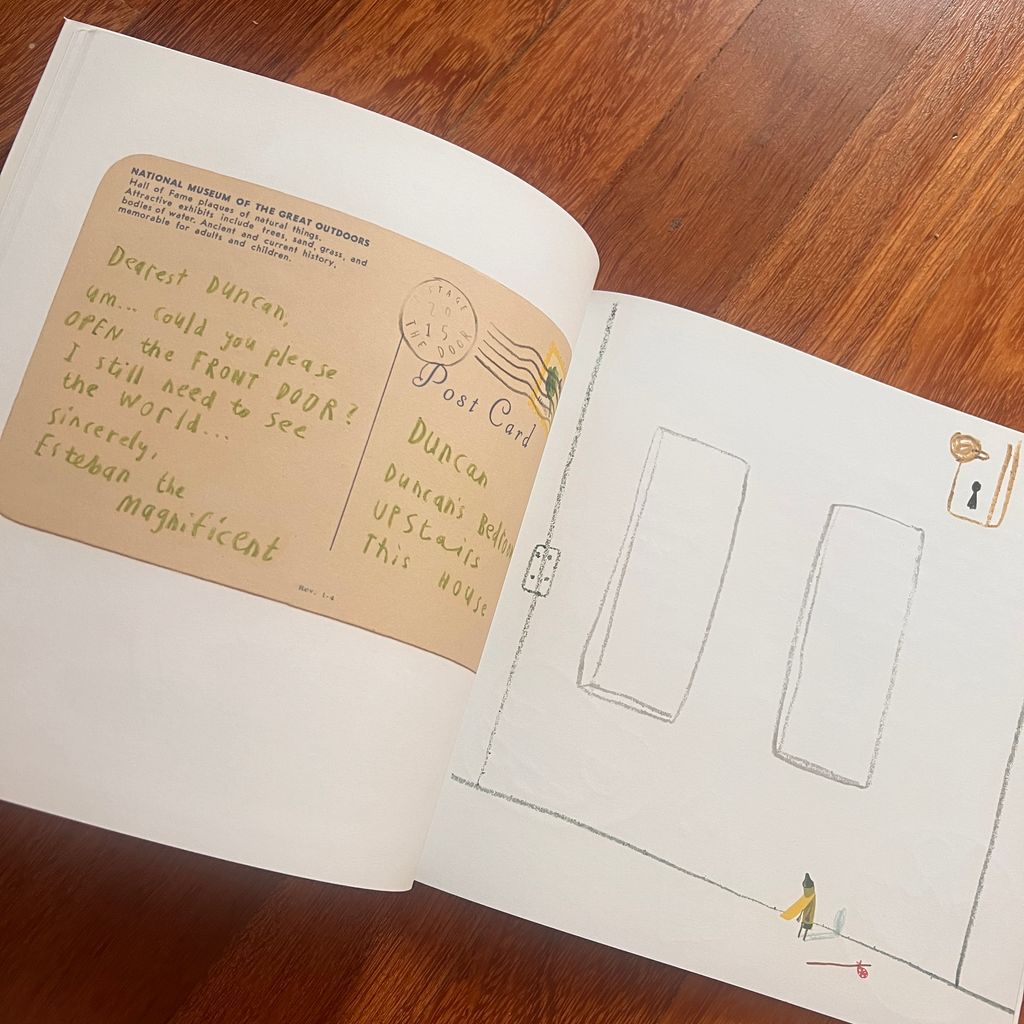 NATIONAL MUSEUM OF THE GREAT OUTDOORS
Hall of Fame plaques of natural things.
Attractive exhibits include trees, sand, grass, and
bodies of water. Ancient and current history,
memorable for adults and children.
Dearest Duncan,
um... could you please
OPEN the FRONT DOOR?
I still need to see
the world...
sincerely,
Esteban the
Magnificent
20
15
THE DOOR
Post Card
Duncan
Duncan's
UPStairs
This House
Rev. 1-4